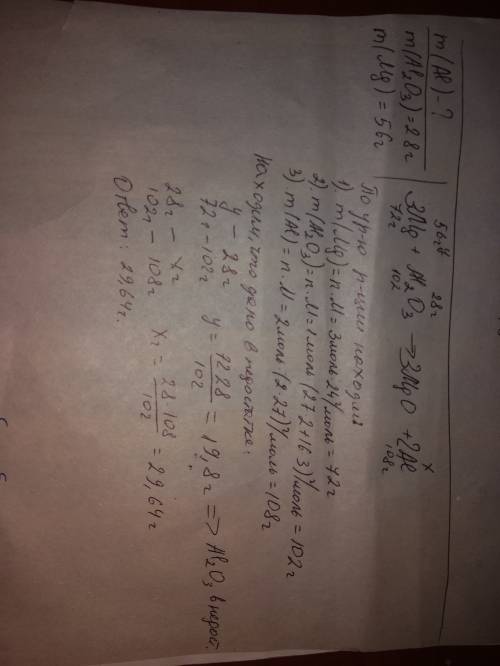 m(Al) - ?
m(Al₂O₃) = 28г
m(Mg) = 56г
56г 28г x
3Mg + Al₂O₃ → 3MgO + 2Al
72г 102 108г
По ур-ю р-ции находим
1). m(Mg) = n·M = 3моль·24г/моль = 72г
2). m(Al₂O₃) = n·M = 1моль·(27·2+16·3)г/моль = 102г
3) m(Al) = n·M = 2моль·(2·27)г/моль = 108г
Находим, что дано в недостатке:
y - 28г
72г - 102г y = 72·28/102 = 19,8г => Al₂O₃ в недост.
28г - xг
102г - 108г xг = 28·108/102 = 29,64г
Ответ: 29,64г.